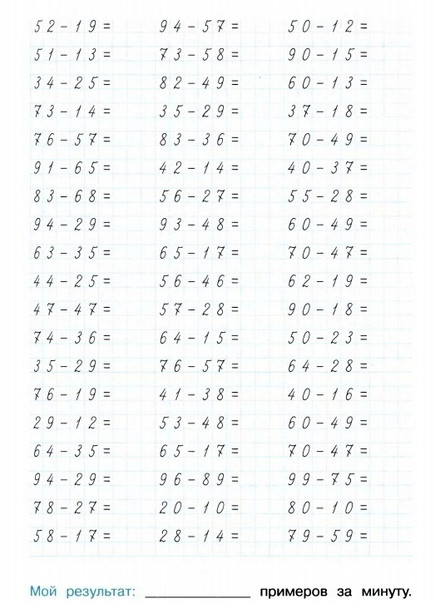 52-19= 94-57= 50-12=
51-13= 73-58= 90-15=
34-25= 82-49= 60-13=
73-14= 35-29= 37-18=
76-57= 83-36= 70-49=
91-65= 42-14= 40-37=
83-68= 56-27= 55-28=
94-29= 93-48= 60-49=
63-35= 65-17= 70-47=
44-25= 56-46= 62-19=
47-47= 57-28= 90-18=
74-36= 64-15= 50-23=
35-29= 76-57= 64-28=
76-19= 41-38= 40-16=
29-12= 53-48= 60-49=
64-35= 65-17= 70-47=
94-29= 96-89= 99-75=
78-27= 20-10= 80-10=
58-17= 28-14= 79-59=
Мой результат: ____________ примеров за минуту.